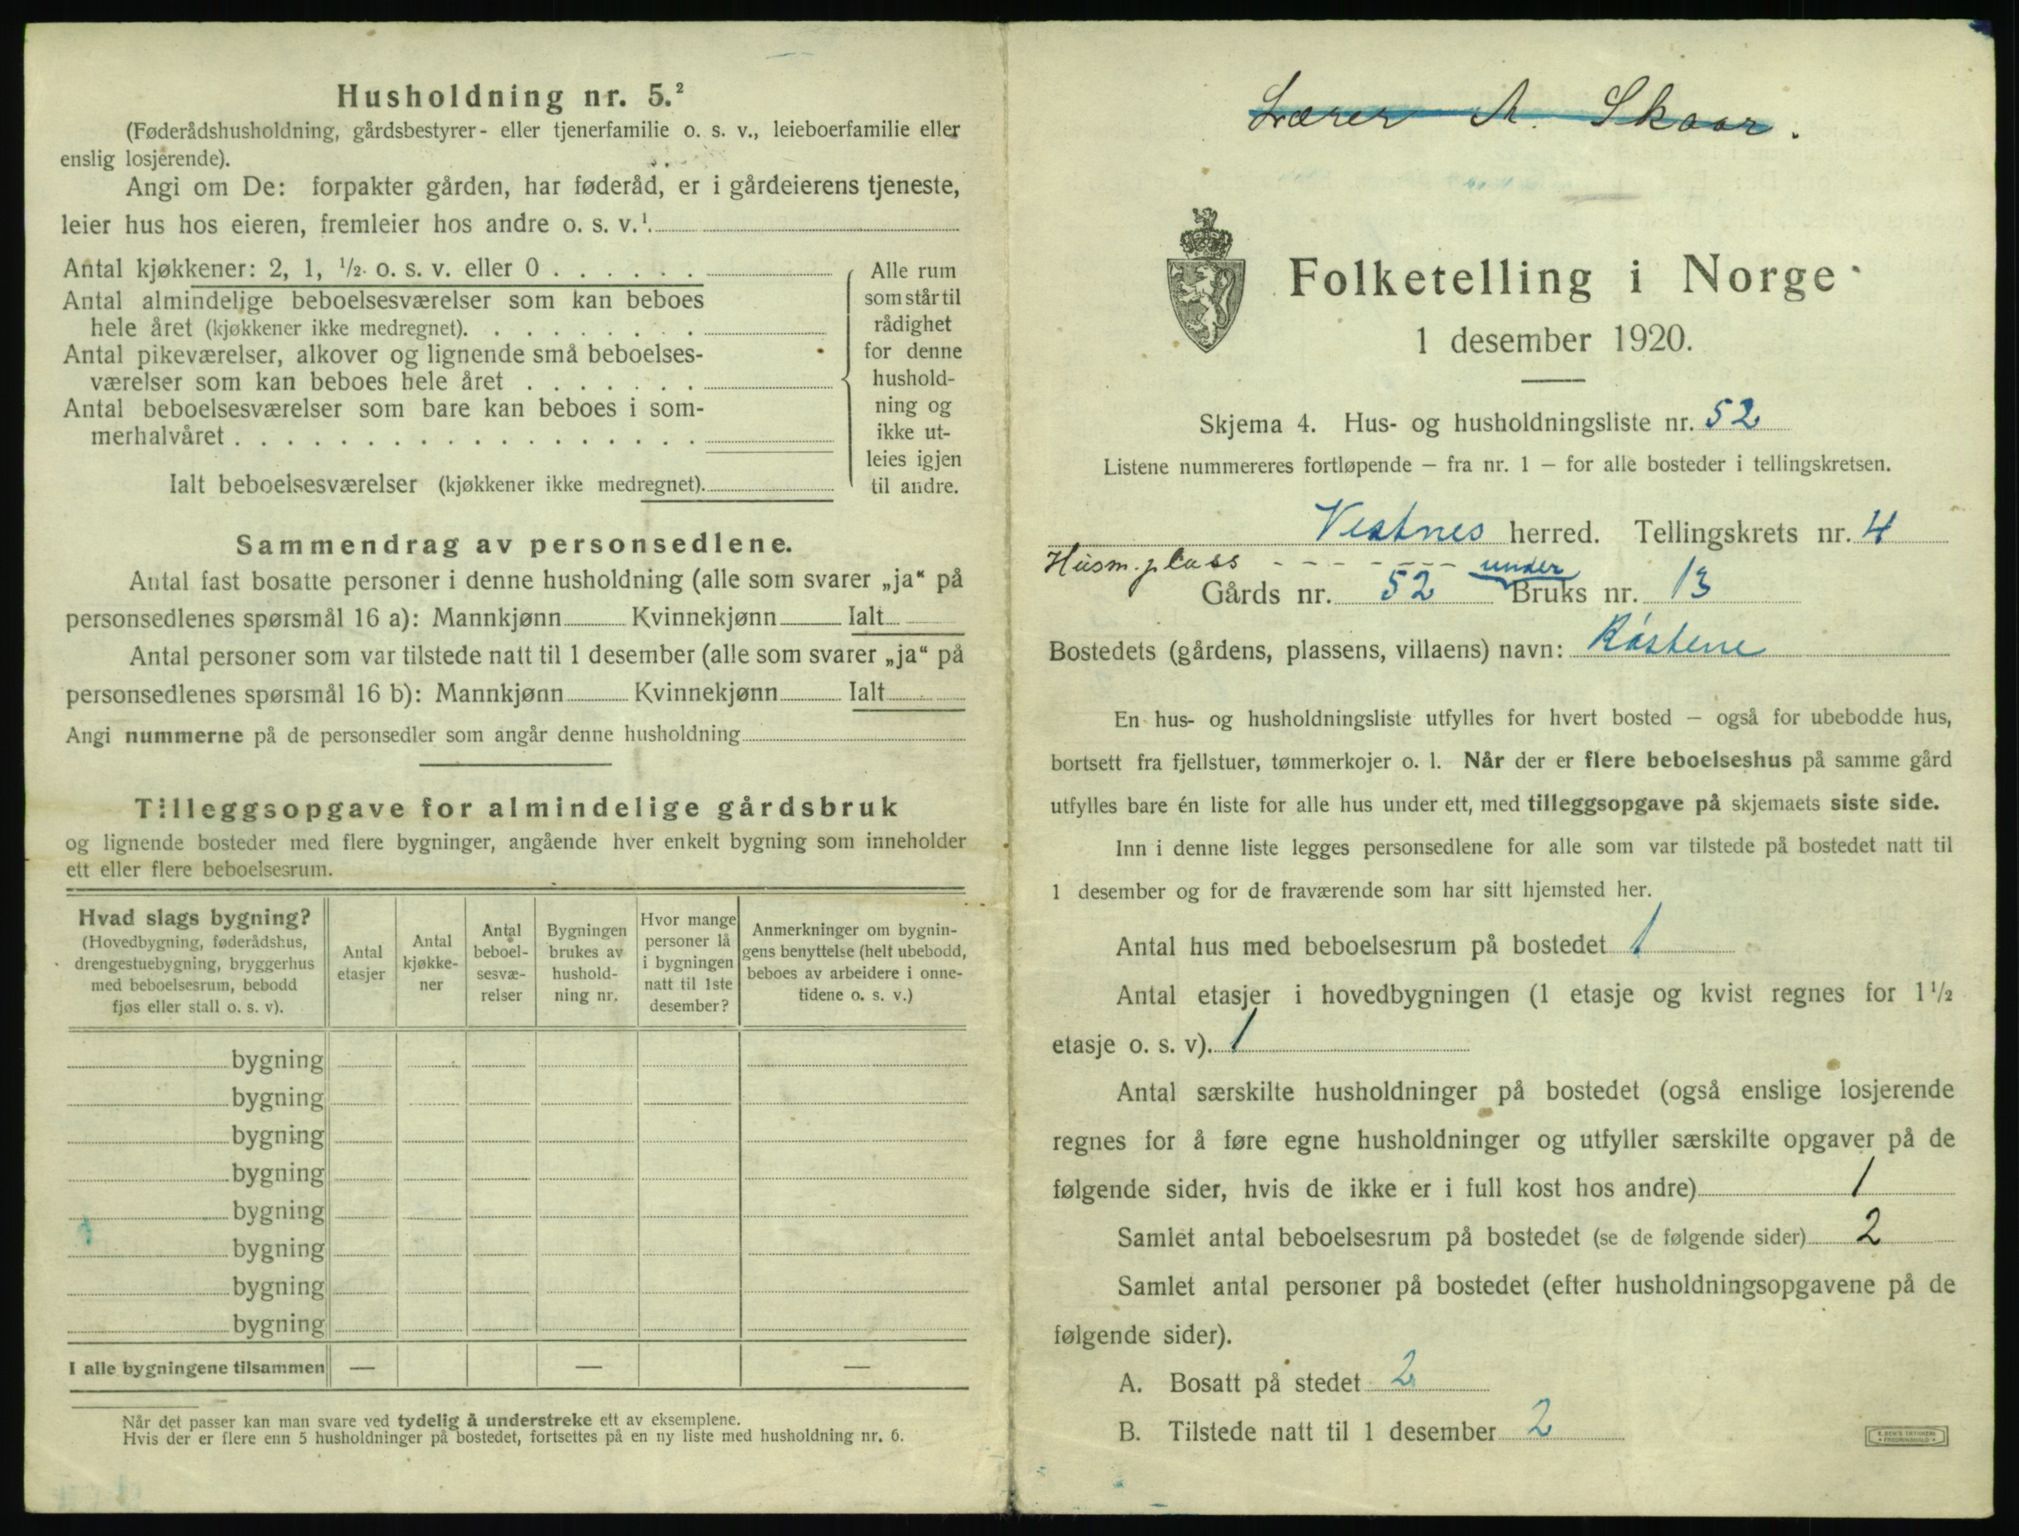 Husholdning nr. 5.²
(Føderådshusholdning, gårdsbestyrer- eller tjenerfamilie o. s. v., leieboerfamilie eller
enslig losjerende).
Angi om De: forpakter gården, har føderåd, er i gårdeierens tjeneste,
leier hus hos eieren, fremleier hos andre o. s. v.¹
Antal kjøkkener: 2, 1, ½ o. s. v. eller 0 . . . . . .
Antal almindelige beboelsesværelser som kan beboes
hele året (kjøkkener ikke medregnet). . . . . . . . .
Antal pikeværelser, alkover og lignende små beboelses-
værelser som kan beboes hele året . . . . . . .
Antal beboelsesværelser som bare kan beboes i som-
merhalvåret . . . . . . . . . . . . . . . . . .
Ialt beboelsesværelser (kjøkkener ikke medregnet).
Alle rum
som står til
rådighet
for denne
hushold-
ning og
ikke ut-
leies igjen
til andre.
Sammendrag av personsedlene.
Antal fast bosatte personer i denne husholdning (alle som svarer „ja“ på
personsedlenes spørsmål 16 a): Mannkjønn Kvinnekjønn Ialt
Antal personer som var tilstede natt til 1 desember (alle som svarer „ja“ på
personsedlenes spørsmål 16 b): Mannkjønn Kvinnekjønn Ialt
Angi nummerne på de personsedler som angår denne husholdning
Tilleggsopgave for almindelige gårdsbruk
og lignende bosteder med flere bygninger, angående hver enkelt bygning som inneholder
ett eller flere beboelsesrum.
Hvad slags bygning?
(Hovedbygning, føderådshus,
drengestuebygning, bryggerhus
med beboelsesrum, bebodd
fjøs eller stall o. s. v).
Antal
etasjer
Antal
kjøkke-
ner
Antal
beboel-
sesvæ-
relser
Bygningen
brukes av
hushold-
ning nr.
Hvor mange
personer lå
i bygningen
natt til 1ste
desember?
Anmerkninger om bygnin-
gens benyttelse (helt ubebodd,
beboes av arbeidere i onne-
tidene o. s. v.)
bygning
bygning
bygning
bygning
bygning
bygning
bygning
bygning
I alle bygningene tilsammen — — —
Når det passer kan man svare ved tydelig å understreke ett av eksemplene.
Hvis der er flere enn 5 husholdninger på bostedet, fortsettes på en ny liste med husholdning nr. 6.
Lærer A. Skaar.
Folketelling i Norge
1 desember 1920.
Skjema 4. Hus- og husholdningsliste nr. 52
Listene nummereres fortløpende – fra nr. 1 – for alle bosteder i tellingskretsen.
Vestnes herred. Tellingskrets nr. 4
Husm.plass - - - - - - - under
Gårds nr. 52 Bruks nr. 13
Bostedets (gårdens, plassens, villaens) navn: Råstene
En hus- og husholdningsliste utfylles for hvert bosted – også for ubebodde hus,
bortsett fra fjellstuer, tømmerkojer o. l. Når der er flere beboelseshus på samme gård
utfylles bare én liste for alle hus under ett, med tilleggsopgave på skjemaets siste side.
Inn i denne liste legges personsedlene for alle som var tilstede på bostedet natt til
1 desember og for de fraværende som har sitt hjemsted her.
Antal hus med beboelsesrum på bostedet 1
Antal etasjer i hovedbygningen (1 etasje og kvist regnes for 1½
etasje o. s. v). 1
Antal særskilte husholdninger på bostedet (også enslige losjerende
regnes for å føre egne husholdninger og utfyller særskilte opgaver på de
følgende sider, hvis de ikke er i full kost hos andre) 1
Samlet antal beboelsesrum på bostedet (se de følgende sider) 2
Samlet antal personer på bostedet (efter husholdningsopgavene på de
følgende sider).
A. Bosatt på stedet 2
B. Tilstede natt til 1 desember 2